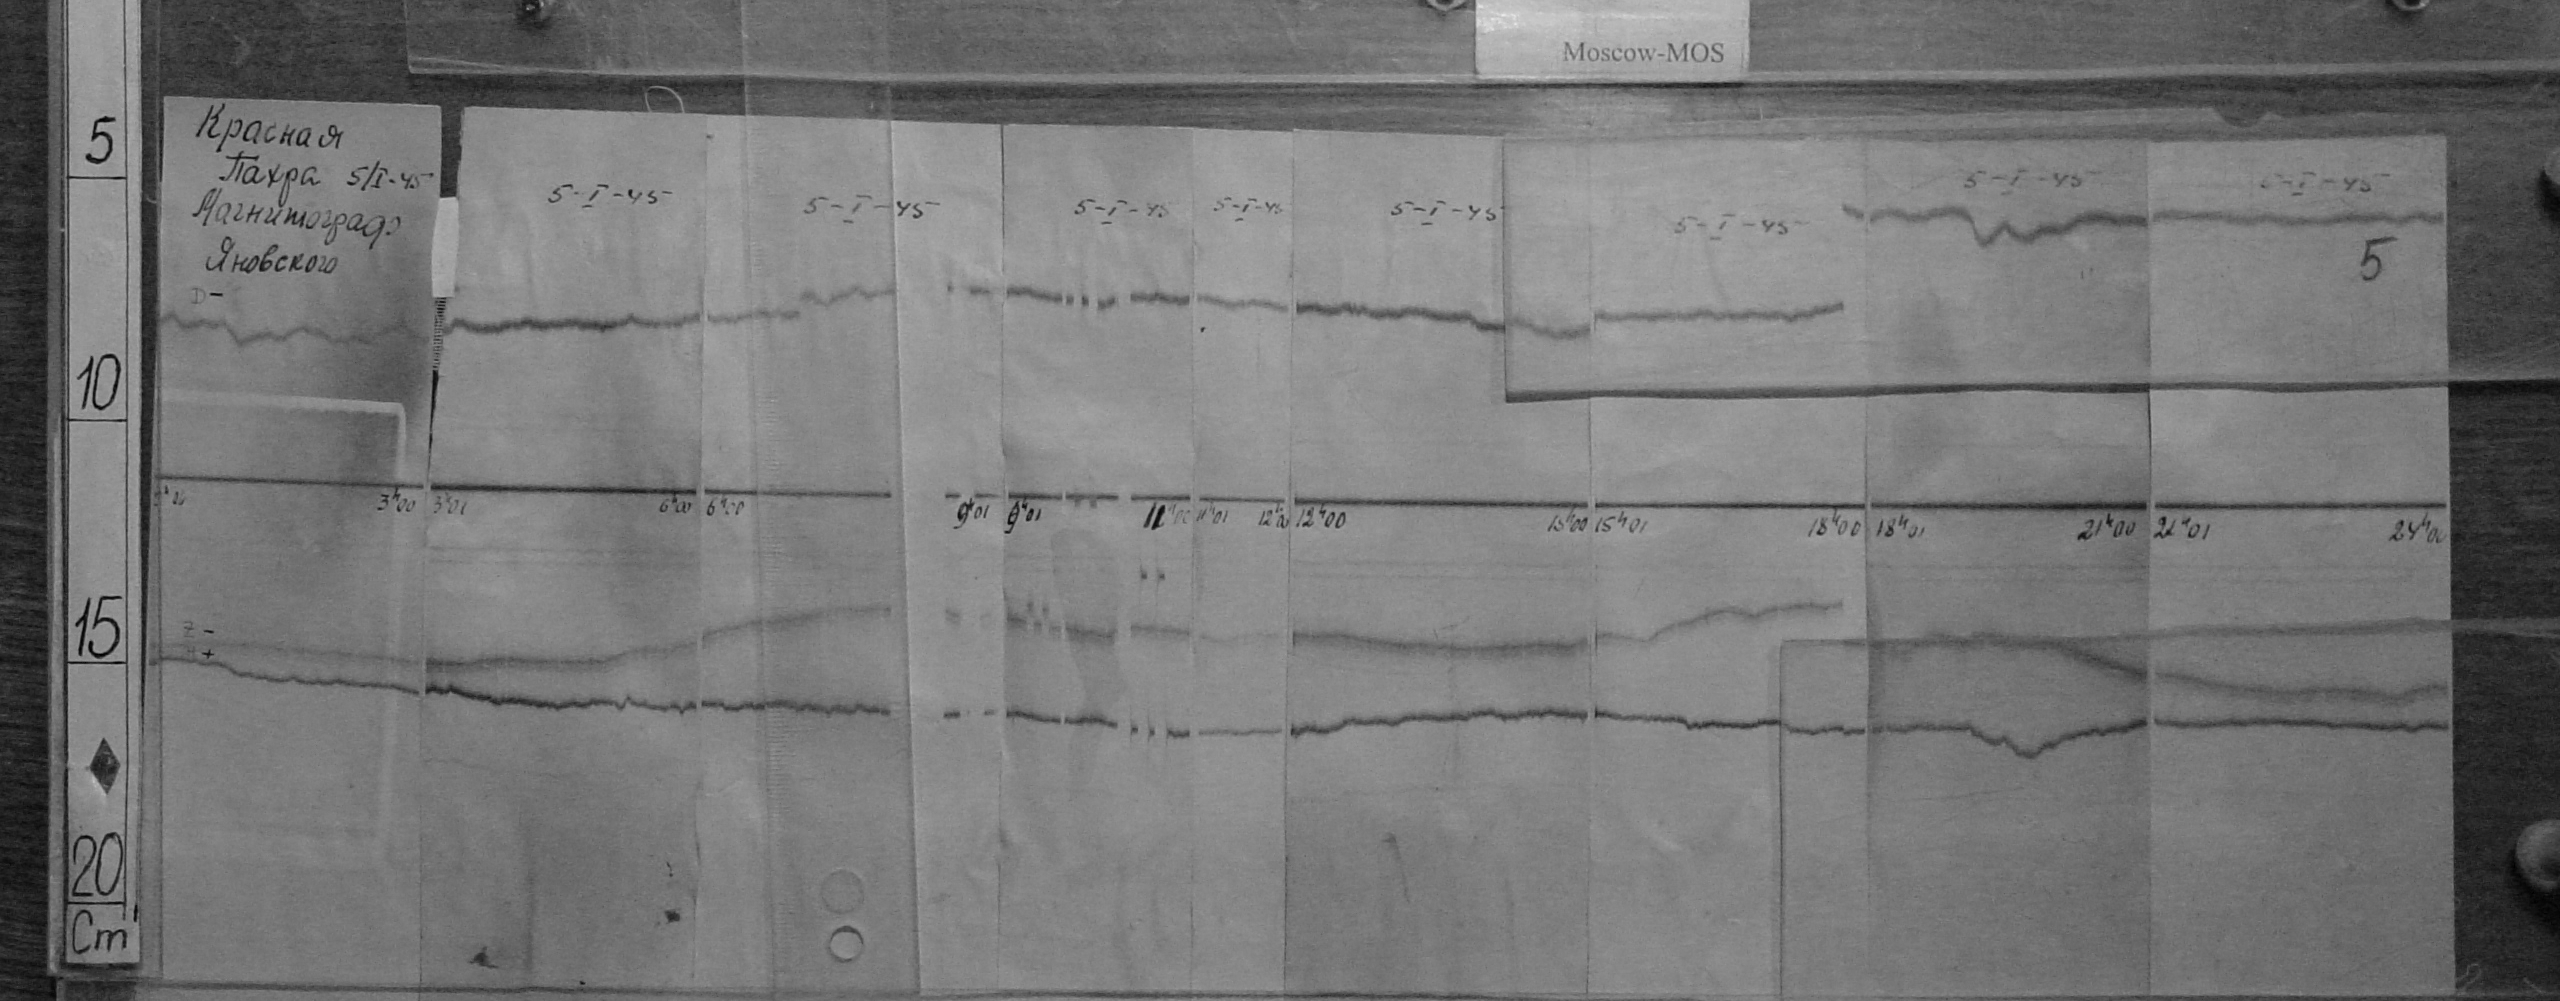 Moscow-MOS
5
10
15
20
Cm
Красная
Пахра 5/I-45
Магнитограф
Яновского
D -
5-I-45
5-I-45
5-I-45
5-I-45
5-I-45
5-I-45
5-I-45
5-I-45
5
3ʰ00 3ʰ01 6ʰ00 6ʰ00 9ʰ01 9ʰ01 11ʰ00 11ʰ01 12ʰ00 12ʰ00 15ʰ00 15ʰ01 18ʰ00 18ʰ01 21ʰ00 21ʰ01 24ʰ00
Z -
H +